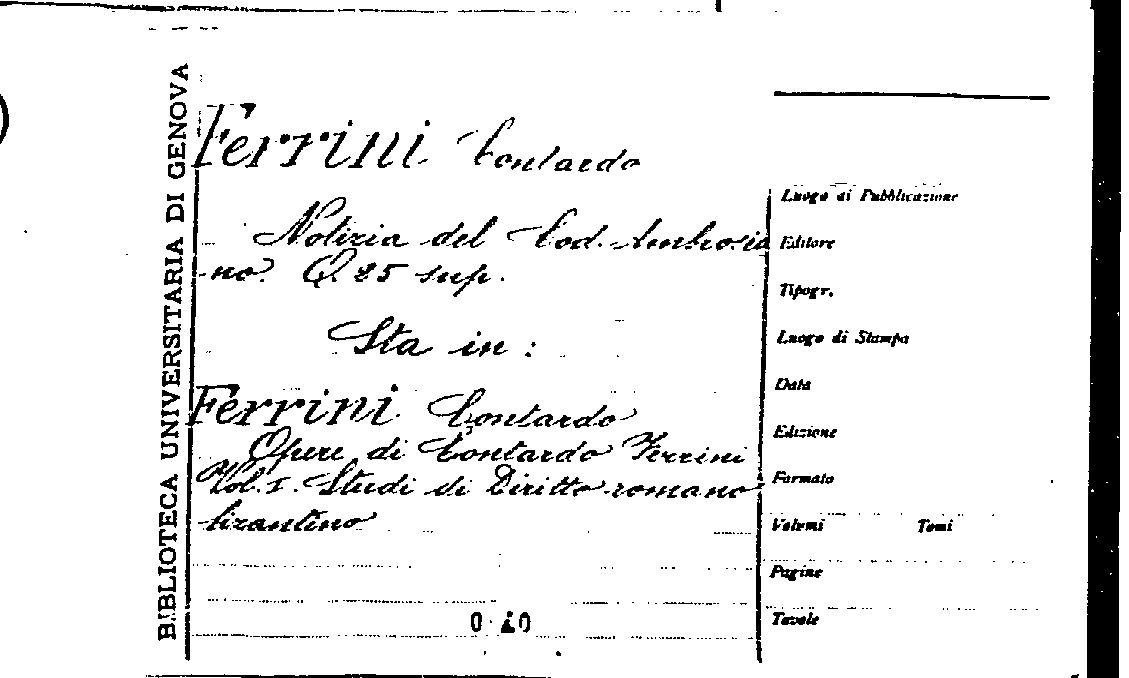 BIBLIOTECA UNIVERSITARIA DI GENOVA
Ferrini Contardo
Notizia del Cod. Ambrosia
no. Q 25 sup.
Sta in :
Ferrini Contardo
Opere di Contardo Ferrini
Vol. I. Studi di Diritto romano
bizantino
Luogo di Pubblicazione
Editore
Tipogr.
Luogo di Stampa
Data
Edizione
Formato
Volumi Tomi
Pagine
Tavole